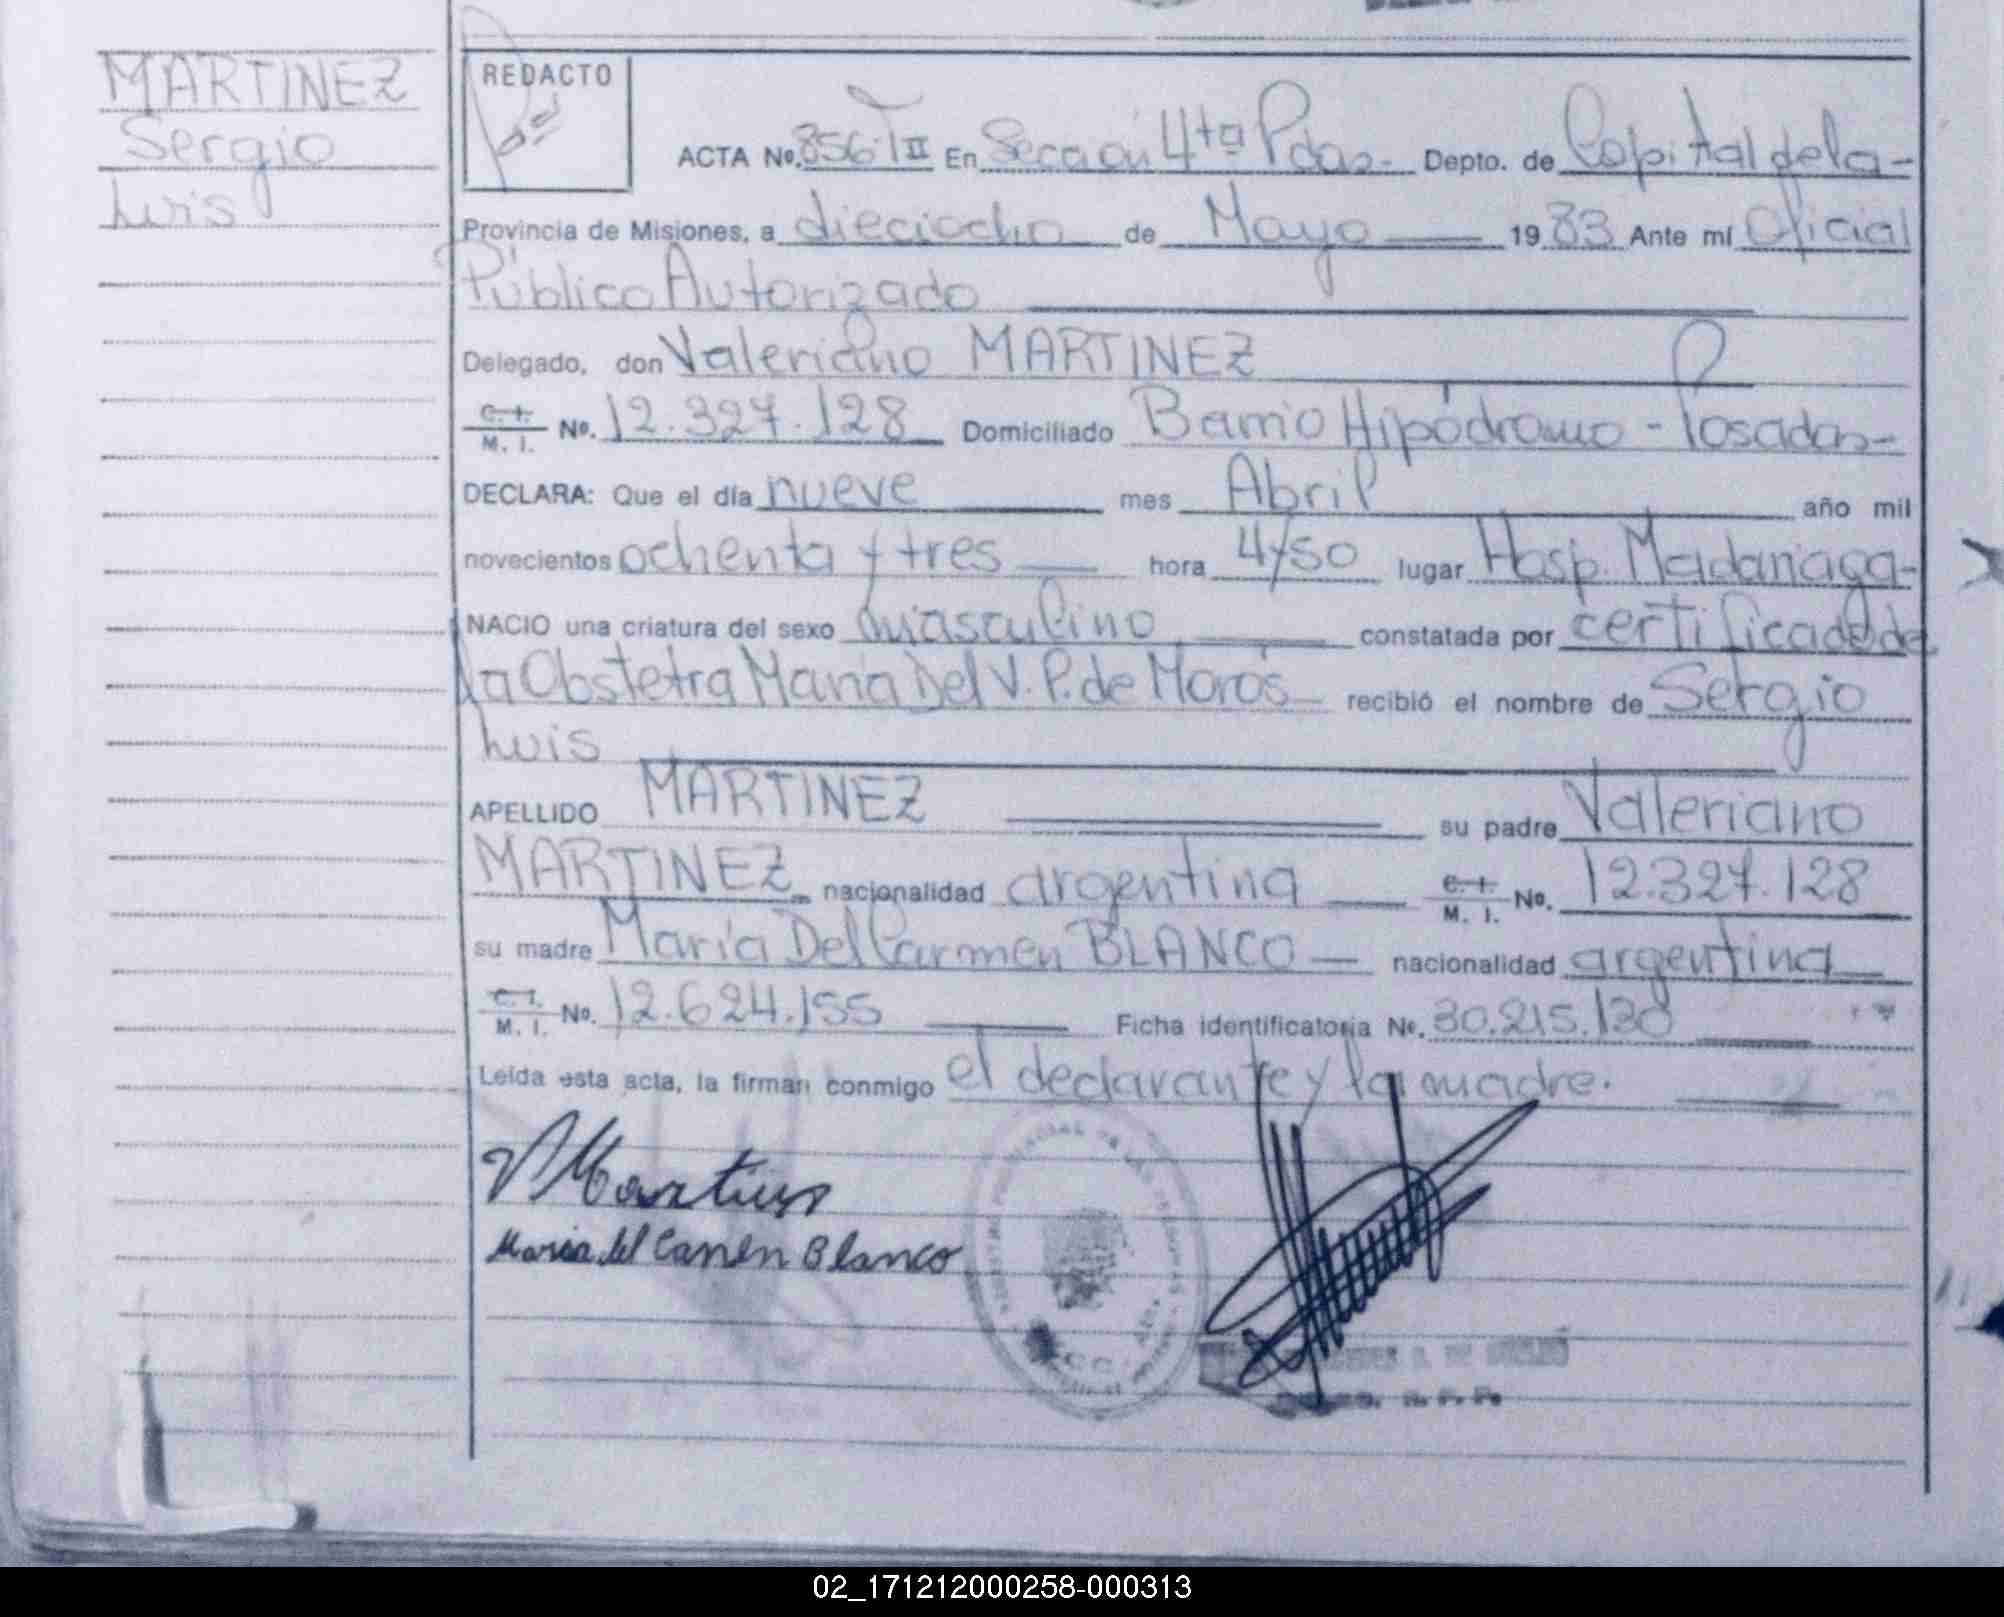 MARTINEZ
Sergio
Luis
REDACTO
ACTA No. 856 TII En Sección 4ta Pdas.- Depto. de Capital de la-
Provincia de Misiones, a dieciocho de Mayo 19 83 Ante mí Oficial
Público Autorizado
Delegado, don Valeriano MARTINEZ
C. I. M. I. No. 12.327.128 Domiciliado Barrio Hipódromo - Posadas-
DECLARA: Que el día nueve mes Abril año mil
novecientos ochenta y tres hora 4/50 lugar Hosp. Madariaga-
NACIO una criatura del sexo masculino constatada por certificado de
la Obstetra María Del V. P. de Moros recibió el nombre de Sergio
Luis
APELLIDO MARTINEZ su padre Valeriano
MARTINEZ nacionalidad argentina C. I. M. I. No. 12.327.128
su madre María Del Carmen BLANCO nacionalidad argentina
C. I. M. I. No. 12.624.155 Ficha identificatoria No. 30.215.130
Leída esta acta, la firman conmigo el declarante y la madre.
V Martines
Maria del Carmen Blanco
02_171212000258-000313